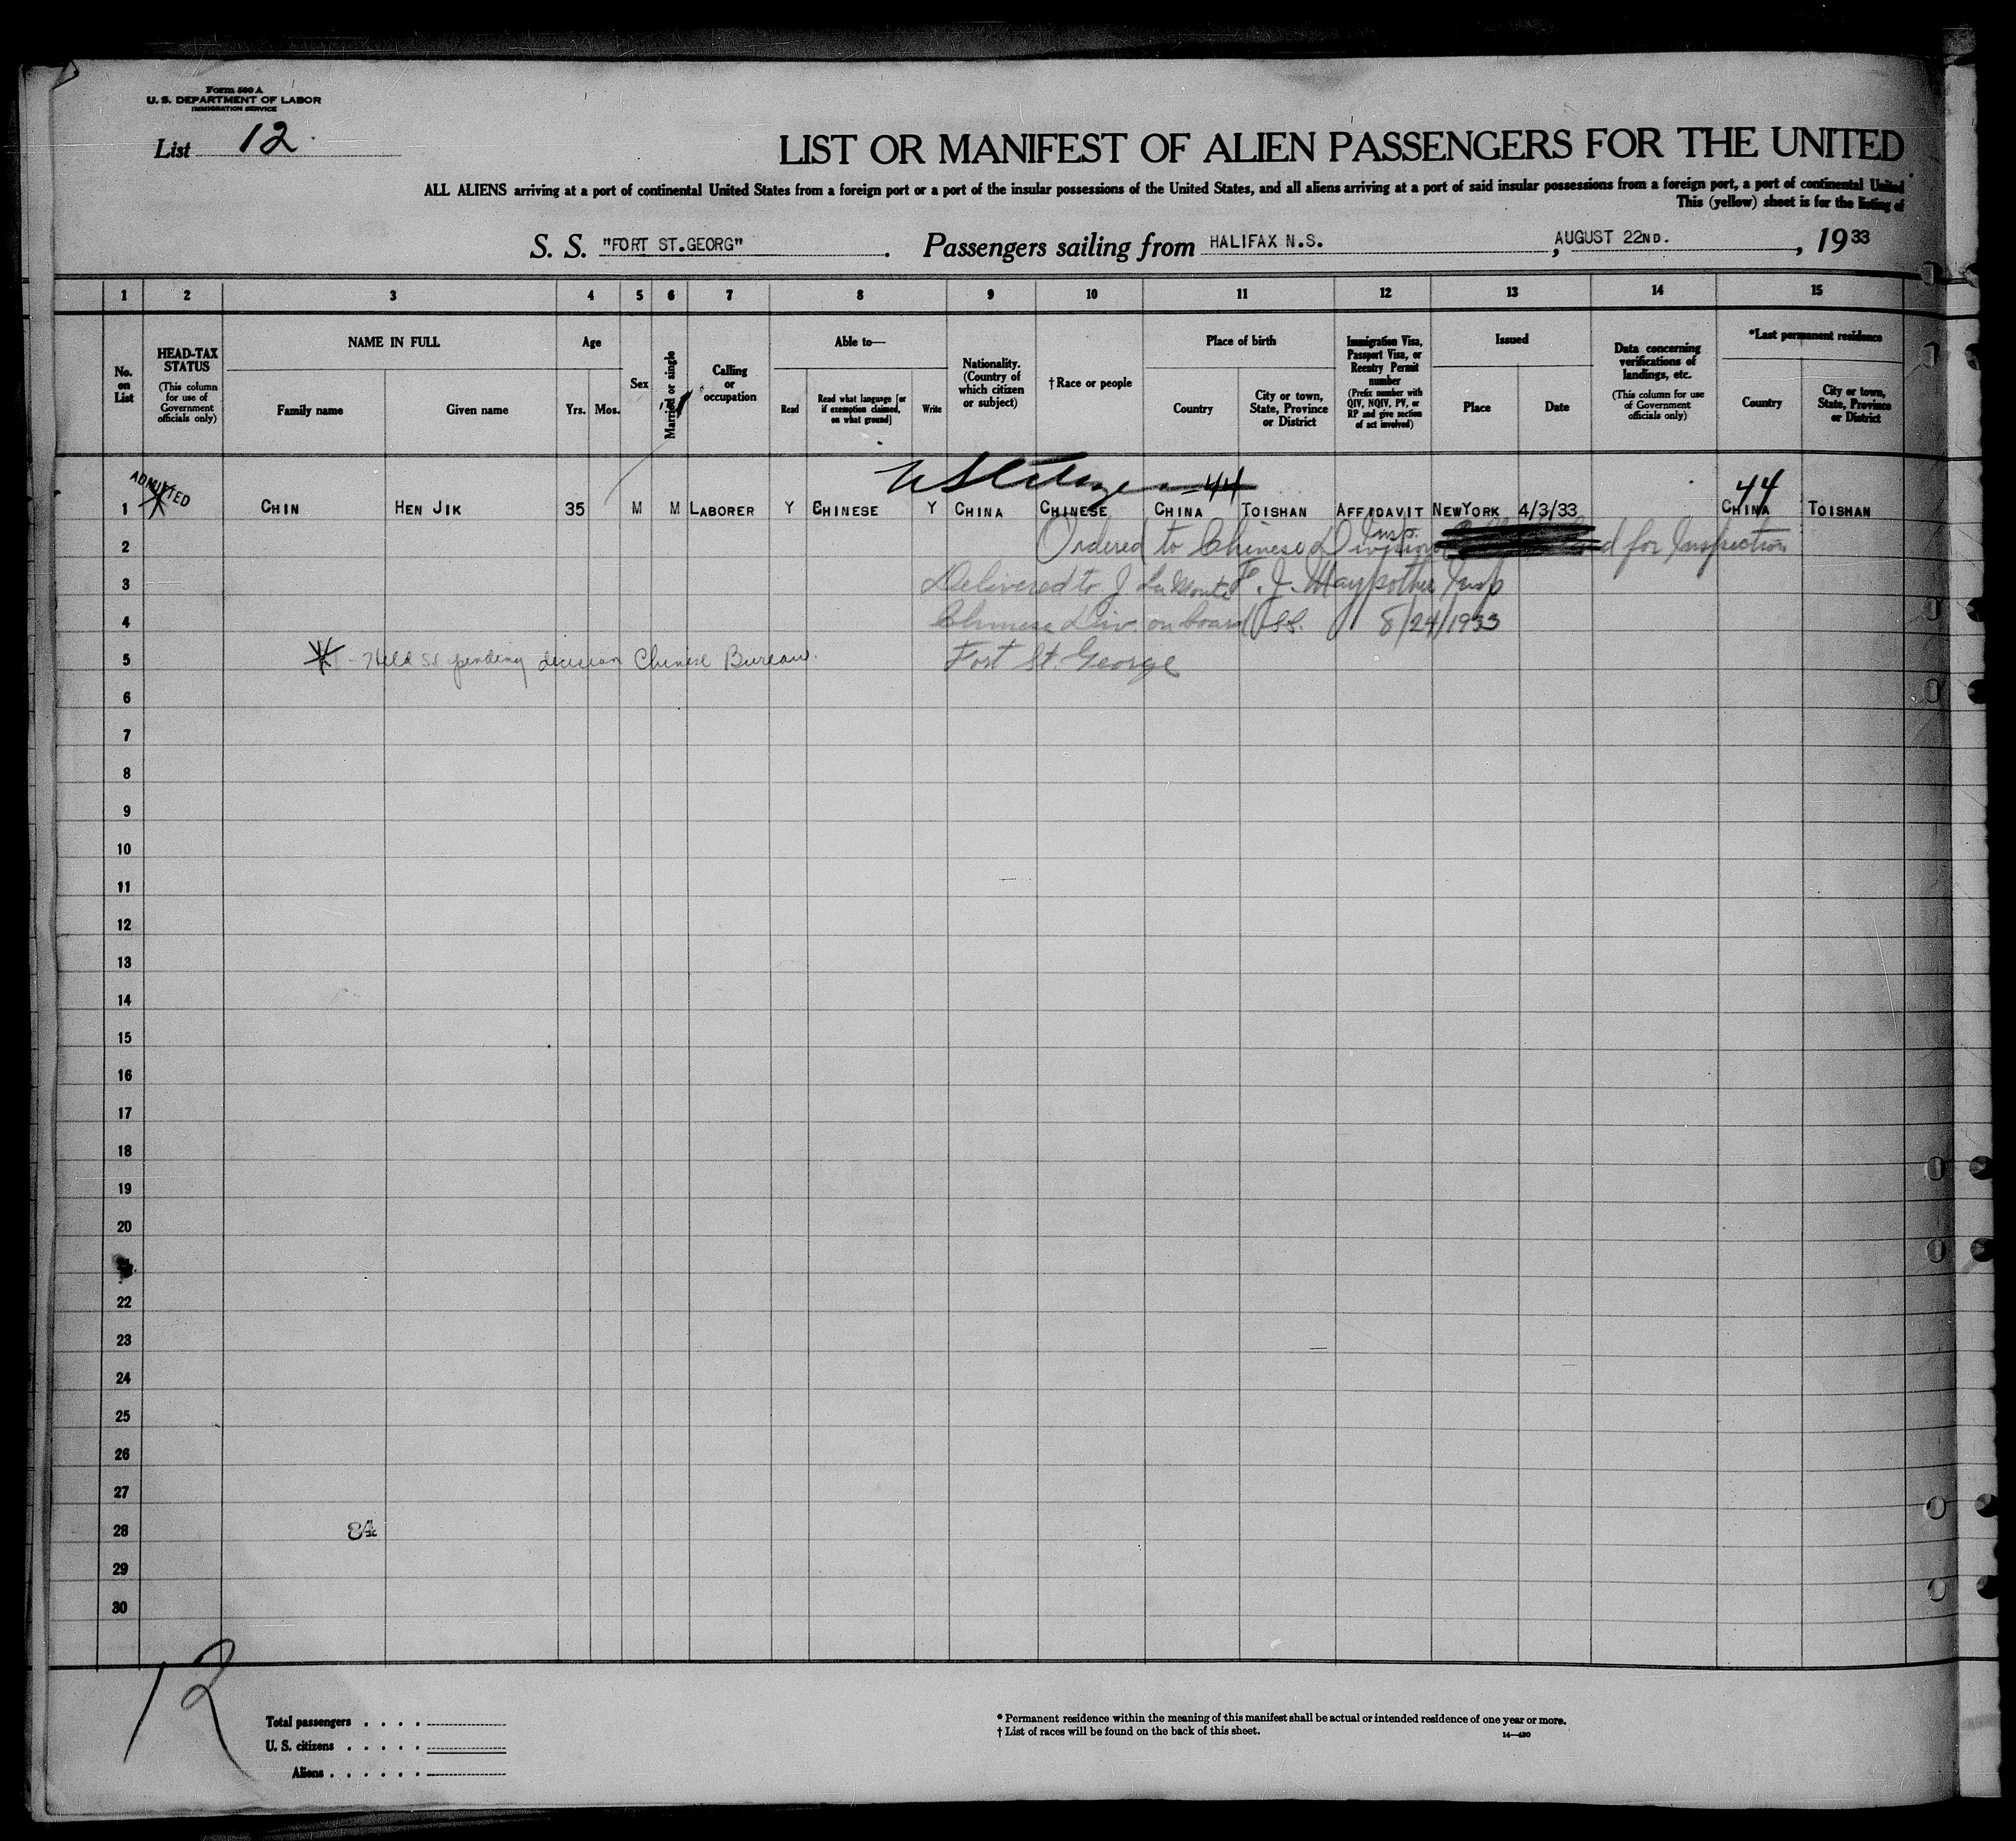 Form 500 A
U. S. DEPARTMENT OF LABOR
IMMIGRATION SERVICE
List 12
LIST OR MANIFEST OF ALIEN PASSENGERS FOR THE UNITED
ALL ALIENS arriving at a port of continental United States from a foreign port or a port of the insular possessions of the United States, and all aliens arriving at a port of said insular possessions from a foreign port, a port of continental United
This (yellow) sheet is for the listing of
S. S. "FORT ST.GEORG". Passengers sailing from HALIFAX N.S., AUGUST 22ND., 1933
1 2 3 4 5 6 7 8 9 10 11 12 13 14 15
No. on List
HEAD-TAX STATUS
(This column for use of Government officials only)
NAME IN FULL
Family name Given name
Age
Yrs. Mos.
Sex
Married or single
Calling or occupation
Able to—
Read
Read what language [or if exemption claimed, on what ground]
Write
Nationality. (Country of which citizen or subject)
† Race or people
Place of birth
Country
City or town, State, Province or District
Immigration Visa, Passport Visa, or Reentry Permit number
(Prefix number with QIV, NQIV, PV, or RP and give section of act involved)
Issued
Place Date
Data concerning verifications of landings, etc.
(This column for use of Government officials only)
*Last permanent residence
Country
City or town, State, Province or District
ADMITTED
44 44
1 CHIN HEN JIK 35 M M LABORER Y CHINESE Y CHINA CHINESE CHINA TOISHAN AFFIDAVIT NEWYORK 4/3/33 CHINA TOISHAN
Insp.
2 Ordered to Chinese Division for Inspection
3 Delivered to J. La Monte F. J. Maypother Insp
4 Chinese Div. on board SS. 8/24/1933
5 Held SI pending decision Chinese Bureau. Fort St. George
6
7
8
9
10
11
12
13
14
15
16
17
18
19
20
22
23
24
25
26
27
28 84
29
30
12
Total passengers . . . .
U. S. citizens . . . . .
Aliens . . . . . .
* Permanent residence within the meaning of this manifest shall be actual or intended residence of one year or more.
† List of races will be found on the back of this sheet.
14—430